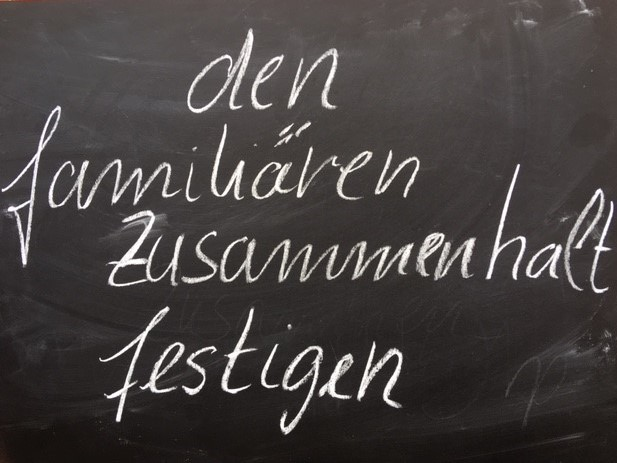 den
familiären
Zusammenhalt
festigen